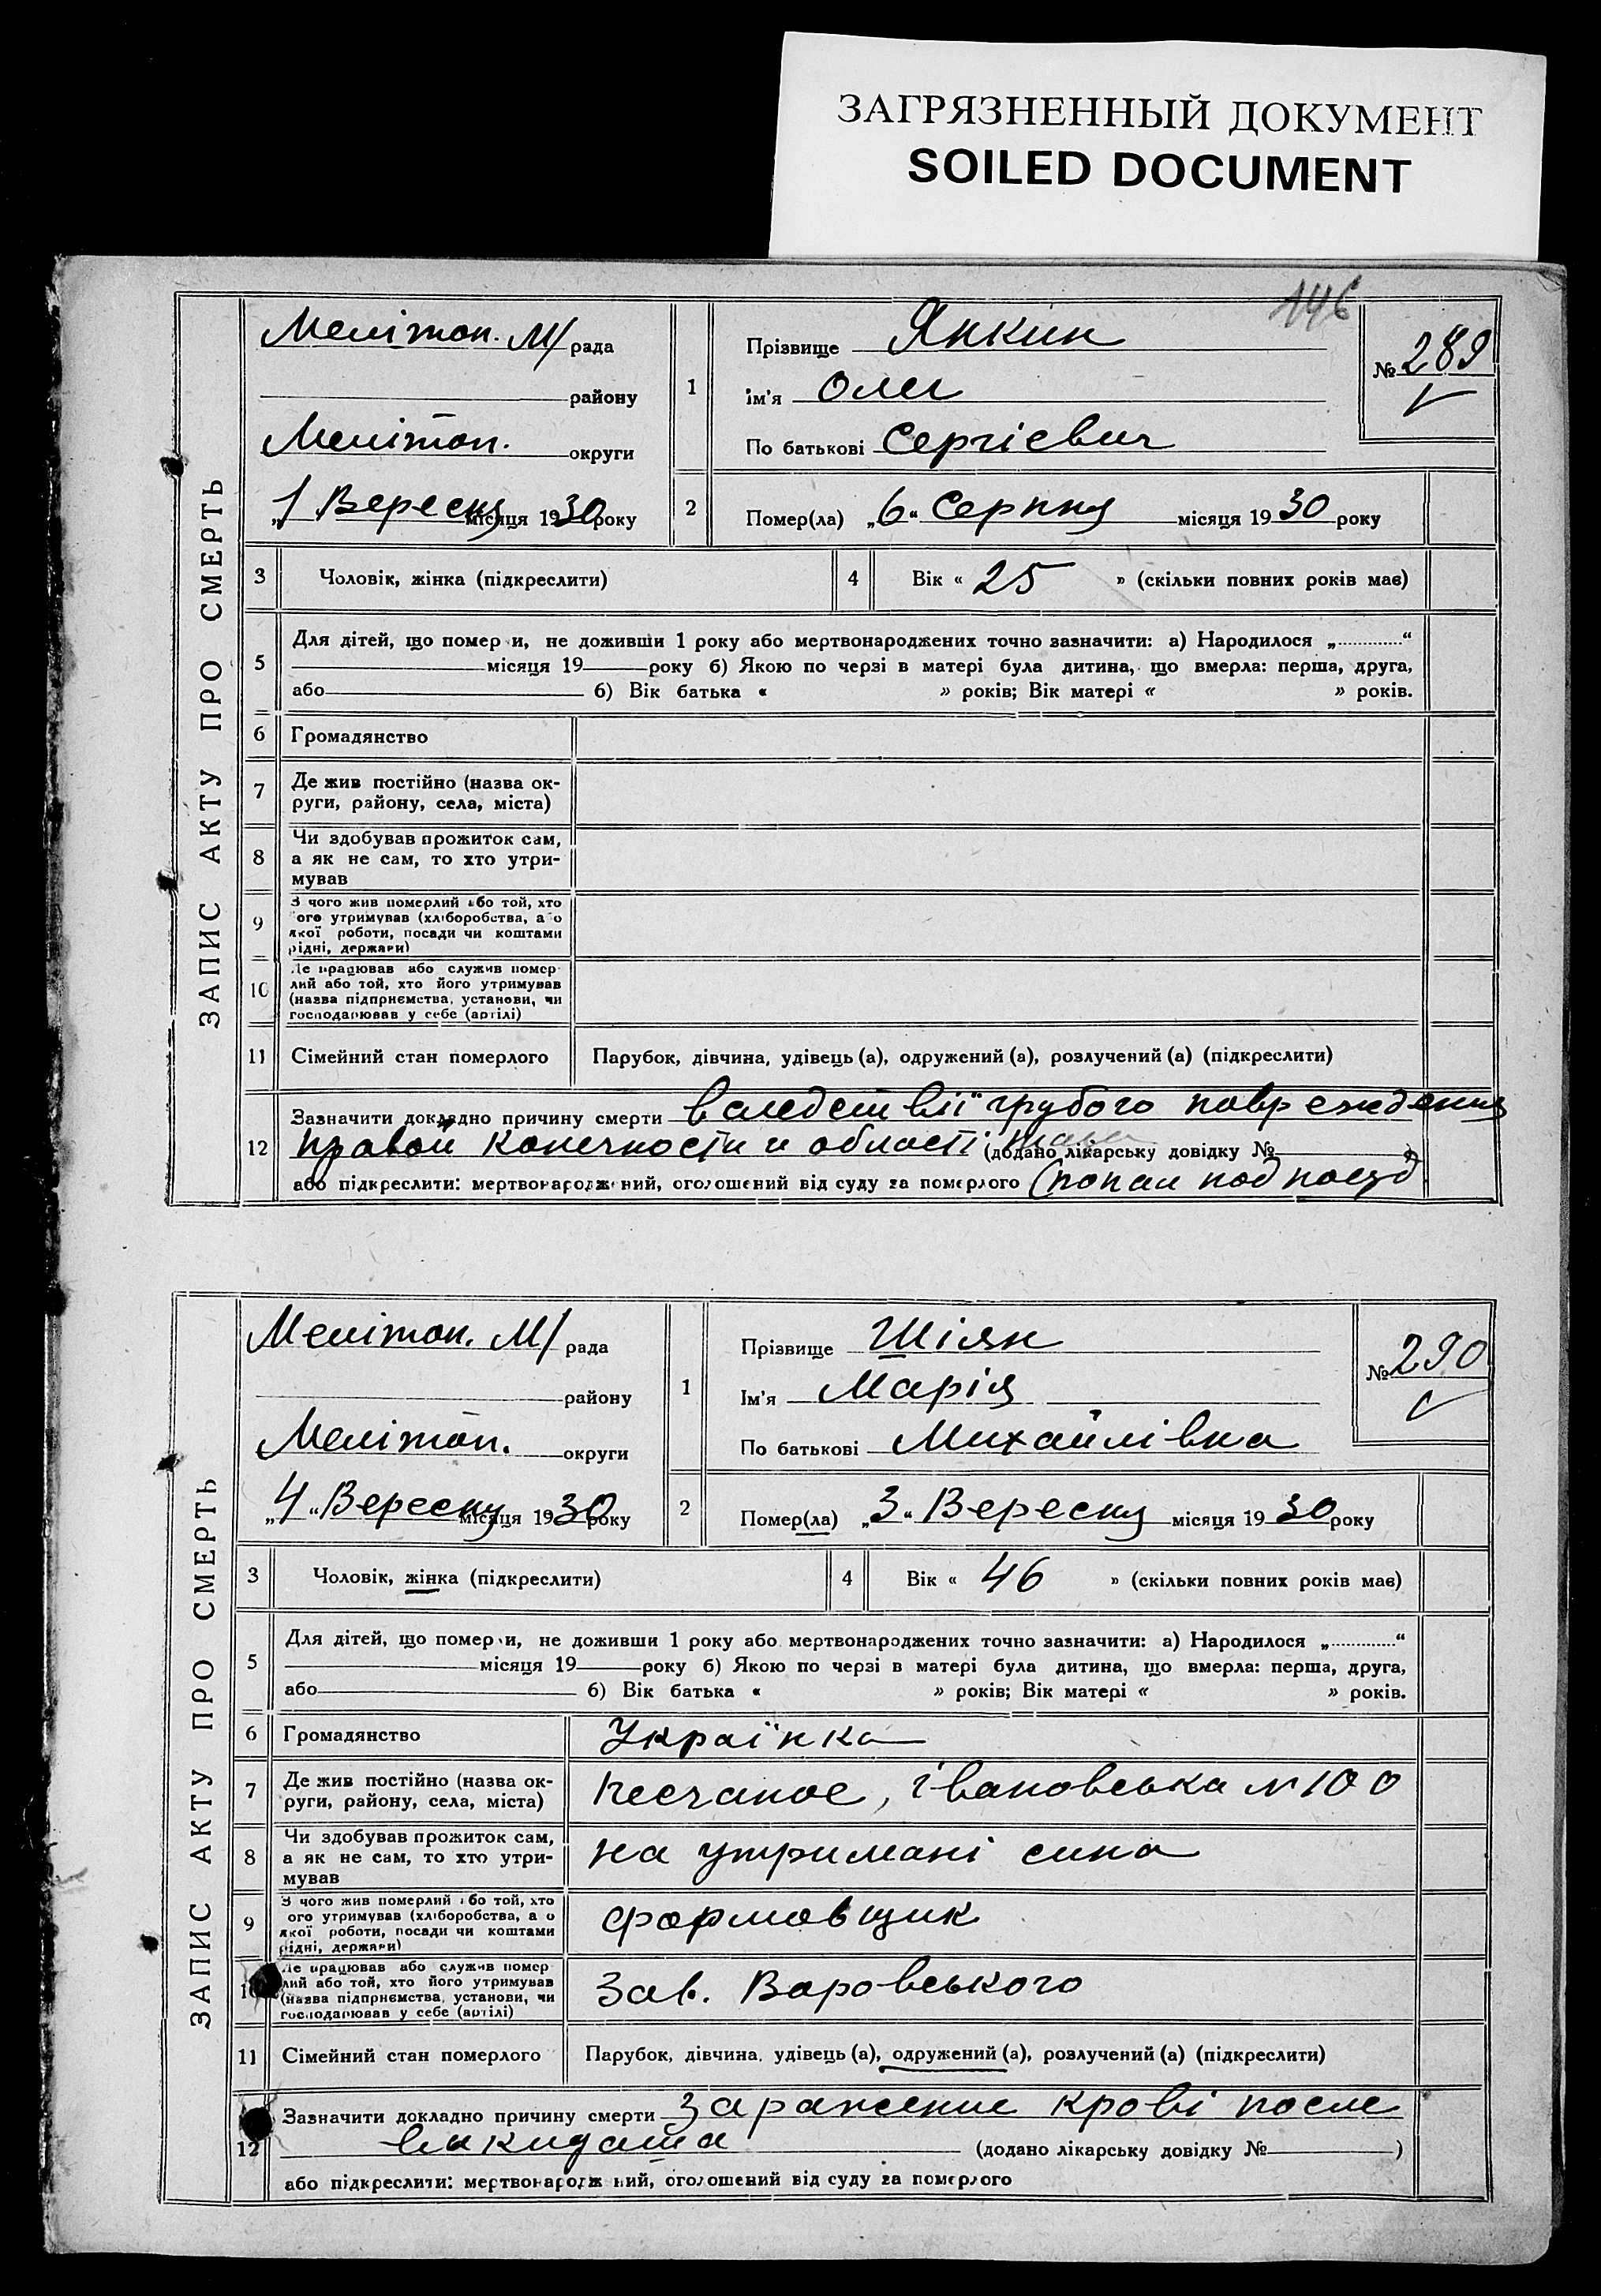 ЗАГРЯЗНЕННЫЙ ДОКУМЕНТ
SOILED DOCUMENT
146
ЗАПИС АКТУ ПРО СМЕРТЬ
Мелітоп. М/ рада
району
Мелітоп. округи
„1 Вересня місяця 1930 року
1
Прізвище Япкин
ім'я Олег
По батькові Сергієвич
№ 289
2
Помер(ла) „6“ Серпня місяця 1930 року
3 Чоловік, жінка (підкреслити)
4 Вік « 25 » (скільки повних років має)
5
Для дітей, що помер и, не доживши 1 року або мертвонароджених точно зазначити: а) Народилося „............“
місяця 19 року б) Якою по черзі в матері була дитина, що вмерла: перша, друга,
або б) Вік батька « » років; Вік матері « » років.
6 Громадянство
7 Де жив постійно (назва ок-
руги, району, села, міста)
8 Чи здобував прожиток сам,
а як не сам, то хто утри-
мував
9 З чого жив померлий або той, хто
ого утримував (хліборобства, а о
якої роботи, посади чи коштами
рідні, держави)
10 Де працював або служив помер
лий або той, хто його утримував
(назва підприємства, установи, чи
господарював у себе (артілі)
11 Сімейний стан померлого Парубок, дівчина, удівець (а), одружений (а), розлучений (а) (підкреслити)
12 Зазначити докладно причину смерти вследствіі грубого повреждения
правой конечности и області (додано лікарську довідку № )
або підкреслити: мертвонароджений, оголошений від суду за померлого (попал под поезд
ЗАПИС АКТУ ПРО СМЕРТЬ
Мелітоп. М/ рада
району
Мелітоп. округи
„4“ Вересня місяця 1930 року
1
Прізвище Шіян
Ім'я Марія
По батькові Михайлівна
№ 290
2
Помер(ла) „3“ Вересня місяця 1930 року
3 Чоловік, жінка (підкреслити)
4 Вік « 46 » (скільки повних років має)
5
Для дітей, що помер и, не доживши 1 року або мертвонароджених точно зазначити: а) Народилося „............“
місяця 19 року б) Якою по черзі в матері була дитина, що вмерла: перша, друга,
або б) Вік батька « » років; Вік матері « » років.
6 Громадянство Українка
7 Де жив постійно (назва ок-
руги, району, села, міста) Песчаное, Івановська № 100
8 Чи здобував прожиток сам,
а як не сам, то хто утри-
мував на утримані сина
9 З чого жив померлий або той, хто
ого утримував (хліборобства, а о
якої роботи, посади чи коштами
рідні, держави) формовщик
10 Де працював або служив помер
лий або той, хто його утримував
(назва підприємства, установи, чи
господарював у себе (артілі) Зав. Воровського
11 Сімейний стан померлого Парубок, дівчина, удівець (а), одружений (а), розлучений (а) (підкреслити)
12 Зазначити докладно причину смерти заражение крові после
выкидаша (додано лікарську довідку № )
або підкреслити: мертвонароджений, оголошений від суду за померлого